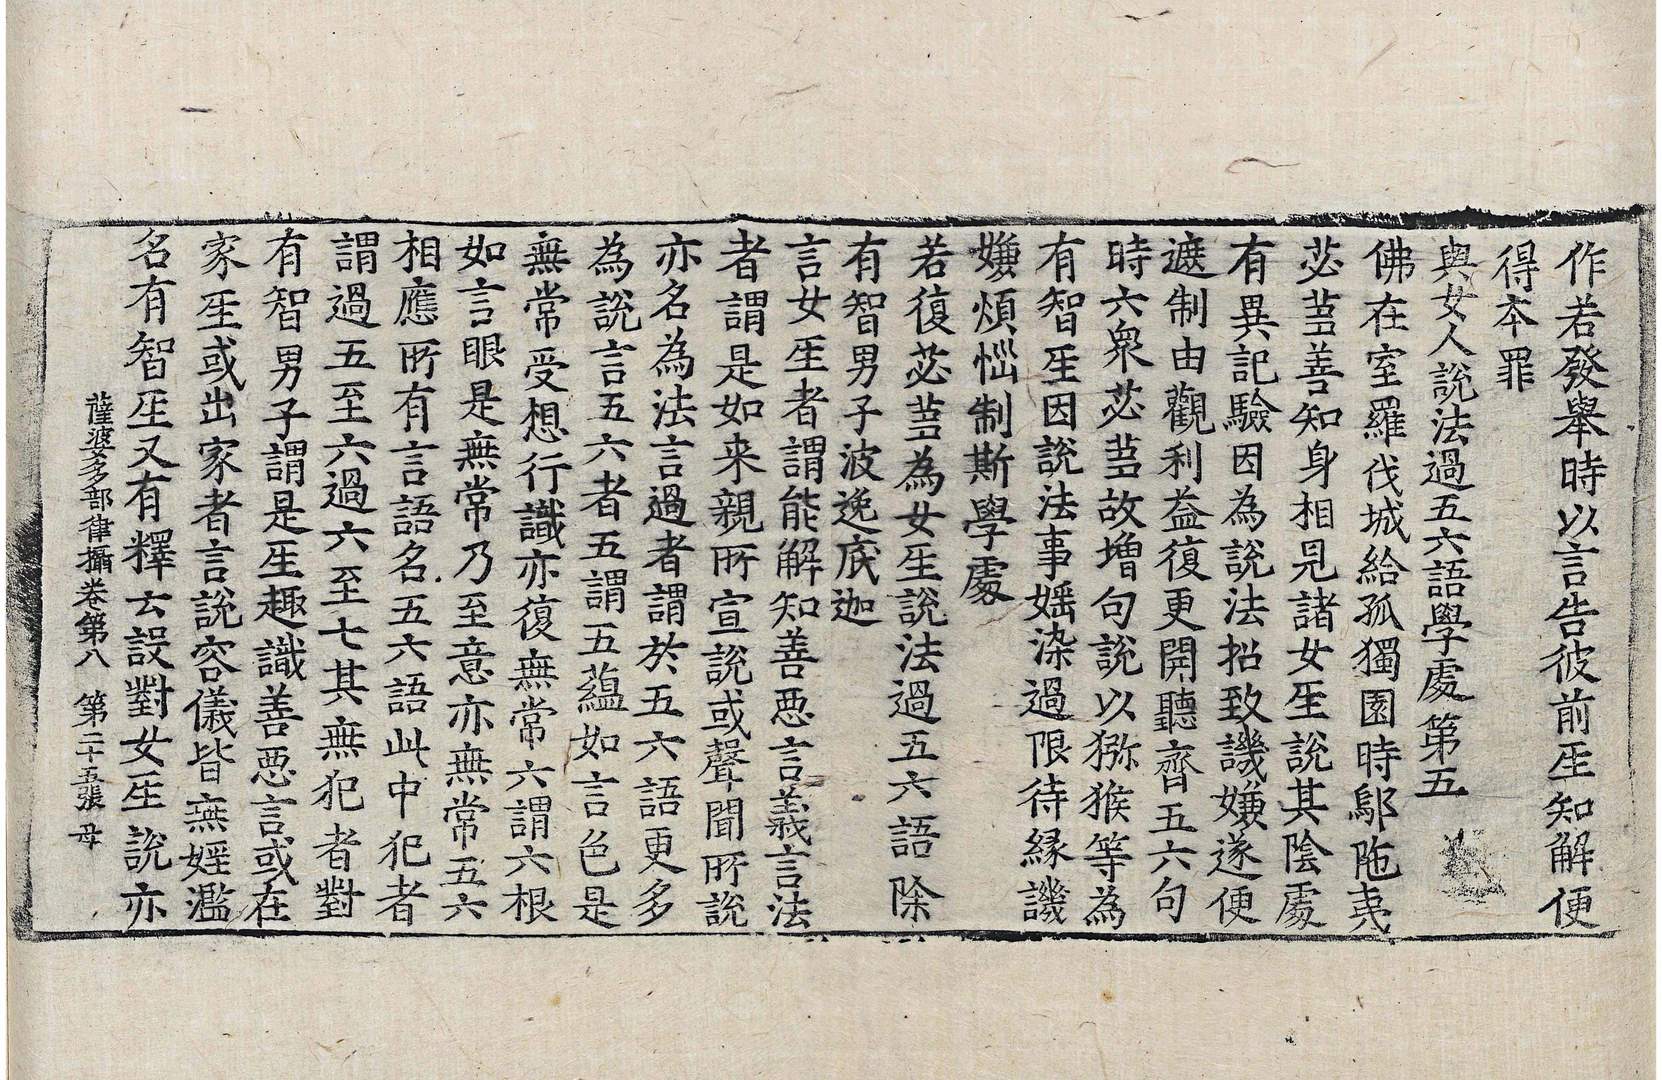 作若發舉時以言告彼前𤯔知解便
得本罪
與女人說法過五六語學處第五
佛在室羅伐城給孤獨園時鄔陁夷
苾蒭善知身相見諸女𤯔說其陰處
有異記驗因為說法招致譏嫌遂便
遮制由觀利益復更開聽齊五六句
時六衆苾蒭故增句說以獼猴等為
有智𤯔因說法事婬染過限待緣譏
嫌煩惱制斯學處
若復苾蒭為女𤯔說法過五六語除
有智男子波逸底迦
言女𤯔者謂能解知善惡言義言法
者謂是如来親所宣說或聲聞所說
亦名為法言過者謂於五六語更多
為說言五六者五謂五蘊如言色是
無常受想行識亦復無常六謂六根
如言眼是無常乃至意亦無常五六
相應所有言語名五六語此中犯者
謂過五至六過六至七其無犯者對
有智男子謂是𤯔趣識善惡言或在
家𤯔或出家者言說容儀皆無婬濫
名有智𤯔又有釋云設對女𤯔說亦
薩婆多部律攝卷第八 第二十五張 母